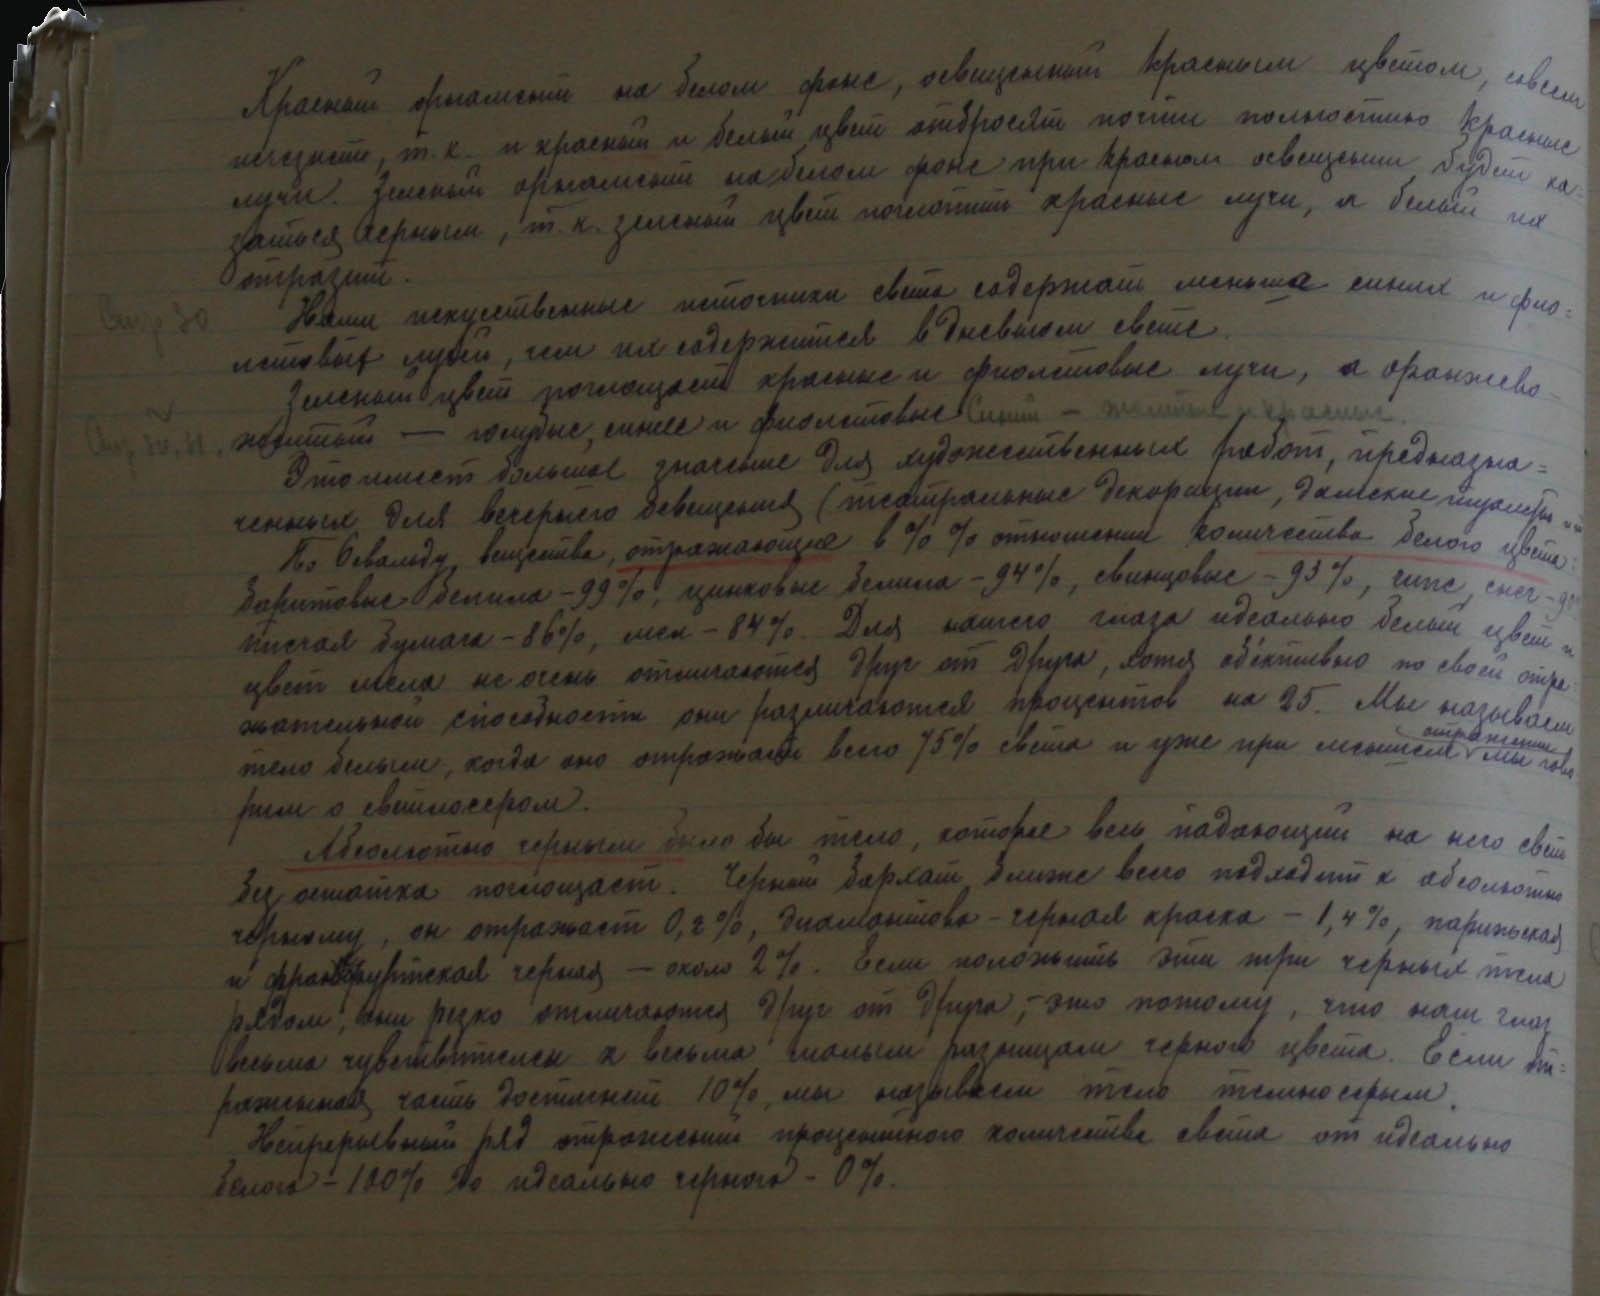 Красный орнамент на белом фоне, освещенный красным цветом, совсем
исчезнет, т.к. и красный и белый цвет отбросят почти полностью красные
лучи. Зеленый орнамент на белом фоне при красном освещении будет ка-
заться черным, т.к. зеленый цвет поглотит красные лучи, а белый их
отразит.
Стр 30
Наши искусственные источники света содержат меньше синих и фио-
летовых лучей, чем их содержится в дневном свете.
Зеленый цвет поглощает красные и фиолетовые лучи, а оранжево-
Стр 30, 31.
желтый — голубые, синие и фиолетовые Синий – желтые и красные.
Это имеет большое значение для художественных работ, предназна=
ченных для вечернего освещения (театральные декорации, дамские туалеты
По Оствальду, вещества, отражающие в % % отношении количества белого цвета:
Баритовые белила – 99%, цинковые белила – 94%, свинцовые – 93%, гипс, снег –
писчая бумага – 86%, мел – 84%. Для нашего глаза идеально белый цвет и
цвет мела не очень отличаются друг от друга, хотя объективно по своей отра-
жательной способности они различаются процентов на 25. Мы называем
отражении
тело белым, когда оно отражает всего 75% света и уже при меньшем мы гово
рим о светлосером.
Абсолютно черным было бы тело, которое весь падающий на него свет
без остатка поглощает. Черный бархат ближе всего подходит к абсолютно
черному, он отражает 0,2%, диамантово-черная краска – 1,4%, парижская
и франкфуртская черная – около 2%. Если положить эти три черных тела
рядом, они резко отличаются друг от друга, – это потому, что наш глаз
весьма чувствителен к весьма малым разницам черного цвета. Если от=
раженная часть достигнет 10%, мы называем тело темносерым.
Непрерывный ряд отражений процентного количества света от идеально
белого – 100% до идеально черного – 0%.